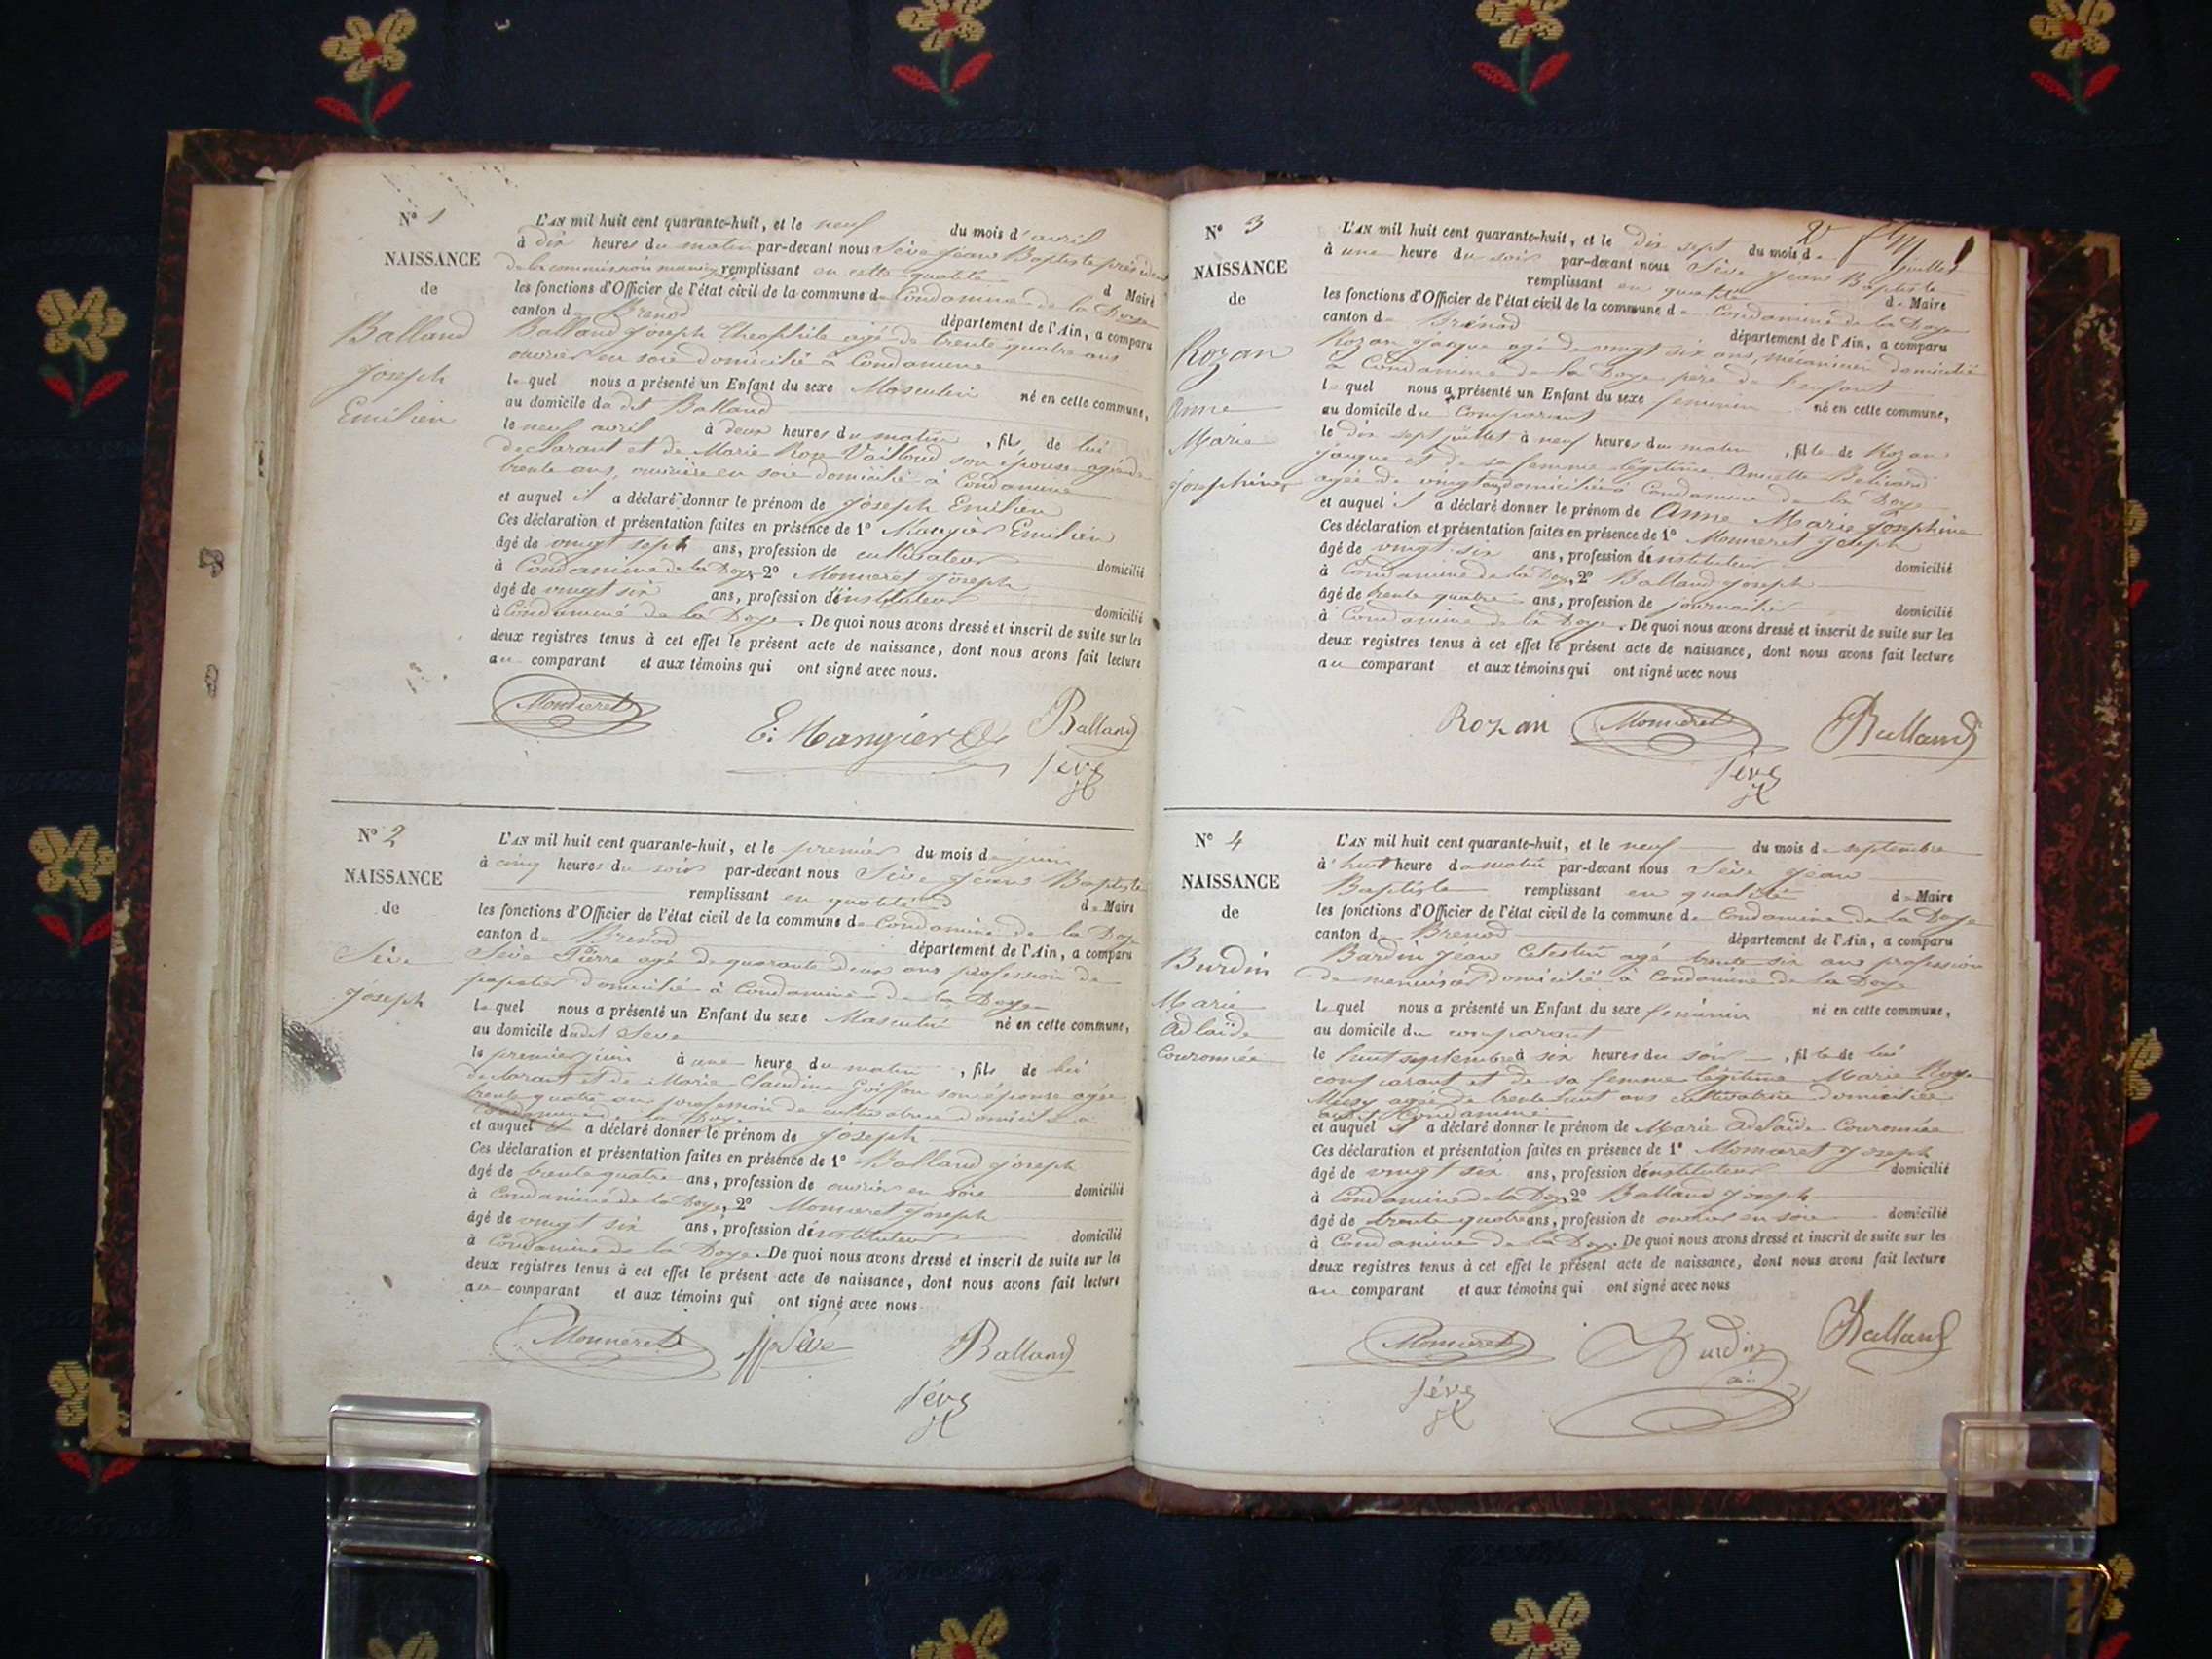 N° 1
NAISSANCE
de
Balland
Joseph
Emilien
L'AN mil huit cent quarante-huit, et le neuf du mois d'avril
à dix heures du matin par-devant nous Sève Jean Baptiste président
de la commission remplissant en cette qualité d Maire
les fonctions d'Officier de l'état civil de la commune de Condamine de la Doye
canton de Brenod département de l'Ain, a comparu
Balland Joseph Theophile agé de trente quatre ans
ouvrier en soie domicilié à Condamine
lequel nous a présenté un Enfant du sexe Masculin né en cette commune,
au domicile du dit Balland
le neuf avril à deux heures du matin, fils de lui
declarant et de Marie Rose Vailloud son épouse agée de
trente ans, ouvrière en soie domicilié à Condamine
et auquel il a déclaré donner le prénom de Joseph Emilien
Ces déclaration et présentation faites en présence de 1° Mangier Emilien
âgé de vingt sept ans, profession de cultivateur domicilié
à Condamine de la Doye, 2° Monneret Joseph
âgé de vingt six ans, profession d'instituteur domicilié
à Condamine de la Doye. De quoi nous avons dressé et inscrit de suite sur les
deux registres tenus à cet effet le présent acte de naissance, dont nous avons fait lecture
au comparant et aux témoins qui ont signé avec nous.
Monneret E. Mangier Balland
Sève
N° 2
NAISSANCE
de
Sève
Joseph
L'AN mil huit cent quarante-huit, et le premier du mois de juin
à cinq heures du soir par-devant nous Sève Jean Baptiste
remplissant en qualité de Maire
les fonctions d'Officier de l'état civil de la commune de Condamine de la Doye
canton de Brenod département de l'Ain, a comparu
Sève Pierre agé de quarante deux ans profession de
papetier domicilié à Condamine de la Doye
lequel nous a présenté un Enfant du sexe Masculin né en cette commune,
au domicile dudit Seve
le premier juin à une heure du matin, fils de lui
declarant et de Marie Claudine Goiffon son épouse agée
trente quatre ans profession de cultivatrice domicilié à
Condamine de la Doye
et auquel il a déclaré donner le prénom de Joseph
Ces déclaration et présentation faites en présence de 1° Balland Joseph
âgé de trente quatre ans, profession de ouvrier en soie domicilié
à Condamine de la Doye, 2° Monneret Joseph
âgé de vingt six ans, profession d'instituteur domicilié
à Condamine de la Doye. De quoi nous avons dressé et inscrit de suite sur les
deux registres tenus à cet effet le présent acte de naissance, dont nous avons fait lecture
au comparant et aux témoins qui ont signé avec nous
Monneret Sève Balland
Sève
N° 3
NAISSANCE
de
Rozan
Anne
Marie
Josephine
L'AN mil huit cent quarante-huit, et le dix sept du mois de juillet
à une heure du soir par-devant nous Sève Jean Baptiste
remplissant en qualité de Maire
les fonctions d'Officier de l'état civil de la commune de Condamine de la Doye
canton de Brénod département de l'Ain, a comparu
Rozan Jaque agé de vingt six ans, mécanicien domicilié
à Condamine de la Doye père de l'enfant
lequel nous a présenté un Enfant du sexe feminin né en cette commune,
au domicile du Comparant
le dix sept juillet à neuf heures du matin, fille de Rozan
Jaque et de sa femme légitime Anicette
agée de vingt domiciliée à Condamine de la Doye
et auquel il a déclaré donner le prénom de Anne Marie Josephine
Ces déclaration et présentation faites en présence de 1° Monneret Joseph
âgé de vingt six ans, profession d'instituteur domicilié
à Condamine de la Doye, 2° Balland Joseph
âgé de trente quatre ans, profession de journalier domicilié
à Condamine de la Doye. De quoi nous avons dressé et inscrit de suite sur les
deux registres tenus à cet effet le présent acte de naissance, dont nous avons fait lecture
au comparant et aux témoins qui ont signé avec nous
Rozan Monneret Balland
Sève
N° 4
NAISSANCE
de
Burdin
Marie
Adlaïde
Couronnée
L'AN mil huit cent quarante-huit, et le neuf du mois de septembre
à huit heure du matin par-devant nous Sève Jean
Baptiste remplissant en qualité de Maire
les fonctions d'Officier de l'état civil de la commune de Condamine de la Doye
canton de Brenod département de l'Ain, a comparu
Burdin Jean Celestin agé trente six ans profession
de menuisier domicilié à Condamine de la Doye
lequel nous a présenté un Enfant du sexe féminin né en cette commune,
au domicile du comparant
le huit septembre à six heures du soir, fille de lui
comparant et de sa femme légitime Marie Rose
agée de trente huit ans cultivatrice domiciliée
audit Condamine
et auquel il a déclaré donner le prénom de Marie Adlaïde Couronnée
Ces déclaration et présentation faites en présence de 1° Monneret Joseph
âgé de vingt six ans, profession d'instituteur domicilié
à Condamine de la Doye 2° Balland Joseph
âgé de trente quatre ans, profession de ouvrier en soie domicilié
à Condamine de la Doye. De quoi nous avons dressé et inscrit de suite sur les
deux registres tenus à cet effet le présent acte de naissance, dont nous avons fait lecture
au comparant et aux témoins qui ont signé avec nous
Monneret Burdin Balland
Sève